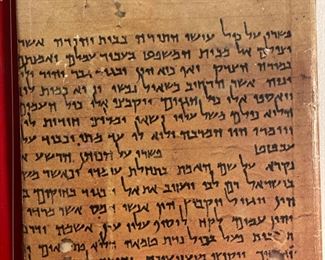 פשרו על כול עושי התורה בבית יהודה אשר
יצילם אל מבית המשפט בעבור עמלם ואמנתם
במורה הצדק ואף כיא הון יבגוד גבר יהיר ולוא
ינוה אשר הרחיב כשאול נפשו והוא כמות לוא
ויאספו אלו כול הגוים ויקבצו אלו כול העמים
הלוא כולם משל עליו ישאו ומליצי חידות לו
ויומרו הוי המרבה ולוא לו עד מתי יכביד עלו
עבטט פשרו על הכוהן הרשע
נקרא על שם האמת בתחלת עומדו וכאשר משל
בישראל רם לבו ויעזוב את אל ויבגוד בחוקים
הון ויגזול ויקבוץ הון אנשי חמס אשר מרדו
והון עמים לקח לוסיף עליו עון אשמה
פעל בכול נדת טמאה